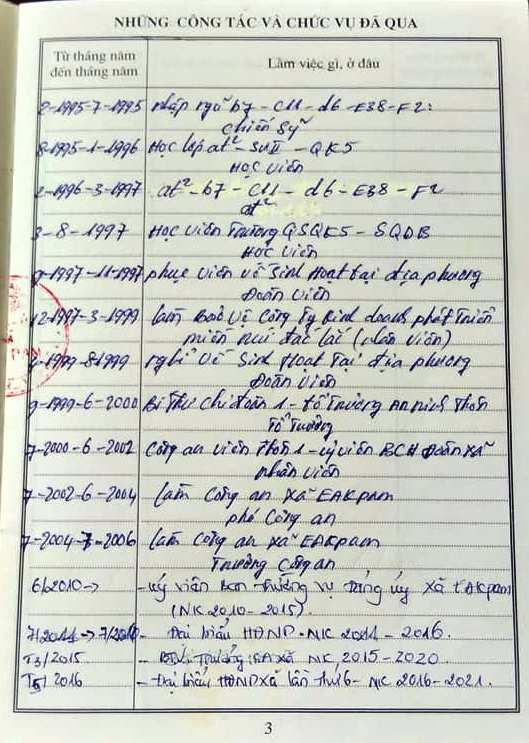 NHỮNG CÔNG TÁC VÀ CHỨC VỤ ĐÃ QUA
Từ tháng năm
đến tháng năm
Làm việc gì, ở đâu
2-1995-7-1995 nhập ngũ b7 - C11 - d6 - E38 - F2:
Chiến Sỹ
8-1995-1-1996 Học lớp at² - - QK5
Học viên
2-1996-3-1997 at² - b7 - C11 - d6 - E38 - F2
at²
3-8-1997 Học viên Trường QSQK5 - SQDB
Học viên
9-1997-11-1997 phục viên về Sinh Hoạt tại địa phương
Đoàn viên
12-1997-3-1999 làm Bảo Vệ Công Ty Kinh doanh phát triển
miền núi đắc lắc (nhân viên)
4-1999-8-1999 nghỉ Về Sinh Hoạt Tại địa phương
Đoàn viên
9-1999-6-2000 Bí Thư chi đoàn 1 - tổ trưởng An ninh Thôn
Tổ Trưởng
7-2000-6-2002 Công an viên Thôn 1 - uỷ viên BCH Đoàn xã
nhân viên
7-2002-6-2004 làm Công an xã EAKpam
phó Công an
7-2004-7-2006 làm Công an xã EAKpam
Trưởng Công an
6/2010-> - uỷ viên Ban Thường vụ Đảng ủy xã EAKpam
(NK 2010-2015).
7/2011 -> 7/2016 - Đại biểu HĐND - NK 2011 - 2016.
T3/2015 - Trưởng CA xã NK, 2015-2020
T5/2016 - Đại biểu HĐND xã lần thứ 6 - NK 2016-2021.
3